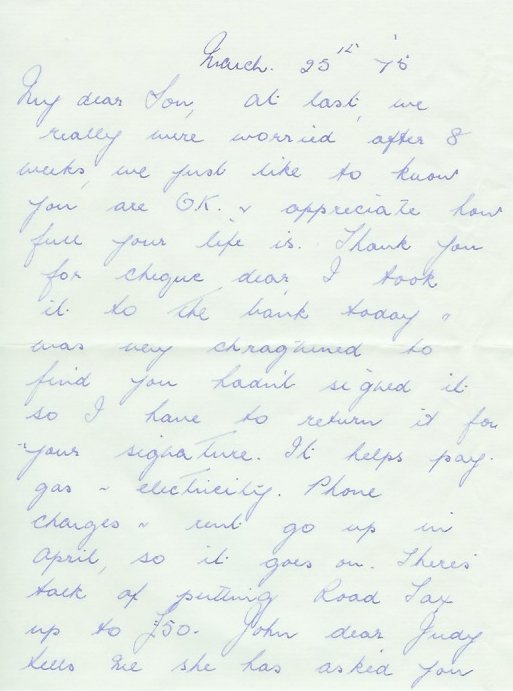 March. 25th '75
My dear Son, at last, we
really were worried after 8
weeks, we just like to know
you are O.K. & appreciate how
full your life is. Thank you
for cheque, dear, I took
it to the bank today &
was very chragrined to
find you hadn't signed it
so I have to return it for
your signature. It helps pay
gas & electricity. Phone
charges & rent go up in
April, so it goes on. There's
talk of putting Road Tax
up to £50. John dear Judy
tells me she has asked you